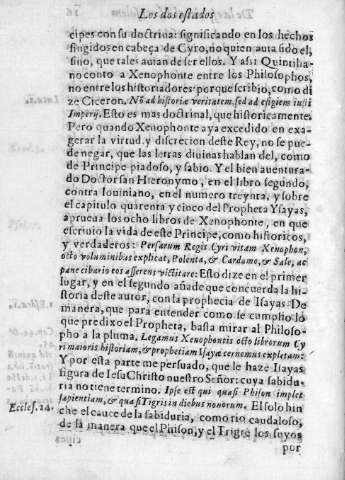 Los dos estados
cipes con su doctrina: significando en los hechos
fingidos en cabeça de Cyro, no quien auia sido el,
sino, que tales auian de ser ellos. Y assi Quintilia-
no conto a Xenophonte entre los Philosophos,
no entre los historiadores porque scribio, como di
ze Ciceron. Nō ad historiæ veritatem, sed ad effigiem iusti
Imperij. Esto es mas doctrinal, que historicamente.
Pero quando Xenophonte aya excedido en exa-
gerar la virtud, y discrecion deste Rey, no se pue-
de negar, que las letras diuinas hablan del, como
de Principe piadoso, y sabio. Y el bien auentura-
do Doctor san Hieronymo, en el libro segundo,
contra Iouiniano, en el numero treynta, y sobre
el capitulo quarenta y cinco del Propheta Ysayas,
aprueua los ocho libros de Xenophonte, en que
escriuio la vida de este Principe, como historicos,
y verdaderos: Persarum Regis Cyri vitam Xenophon,
octo voluminibus explicat, Polenta, & Cardamo, & Sale, ac
pane cibario eos asserens victitare: Esto dize en el primer
lugar, y en el segundo añade que concuerda la hi-
storia deste autor, con la prophecia de Isayas. De
manera, que para entender como se cumplio lo
que predixo el Propheta, basta mirar al Philoso-
pho a la pluma. Legamus Xenophontis octo librorum Cy
ri maioris historiam, & prophetiam Isayæ cernemus expletam:
Y por esta parte me persuado, que le haze Isayas
figura de Iesu Christo nuestro Señor: cuya sabidu-
ria no tiene termino. Ipse est qui quasi Phison implet
sapientiam, & quasi Tigris in diebus nouorum. El solo hin
Eccles. 24.
che el cauce de la sabiduria, como rio caudaloso,
de la manera que el Phison, y el Trigre los suyos
por